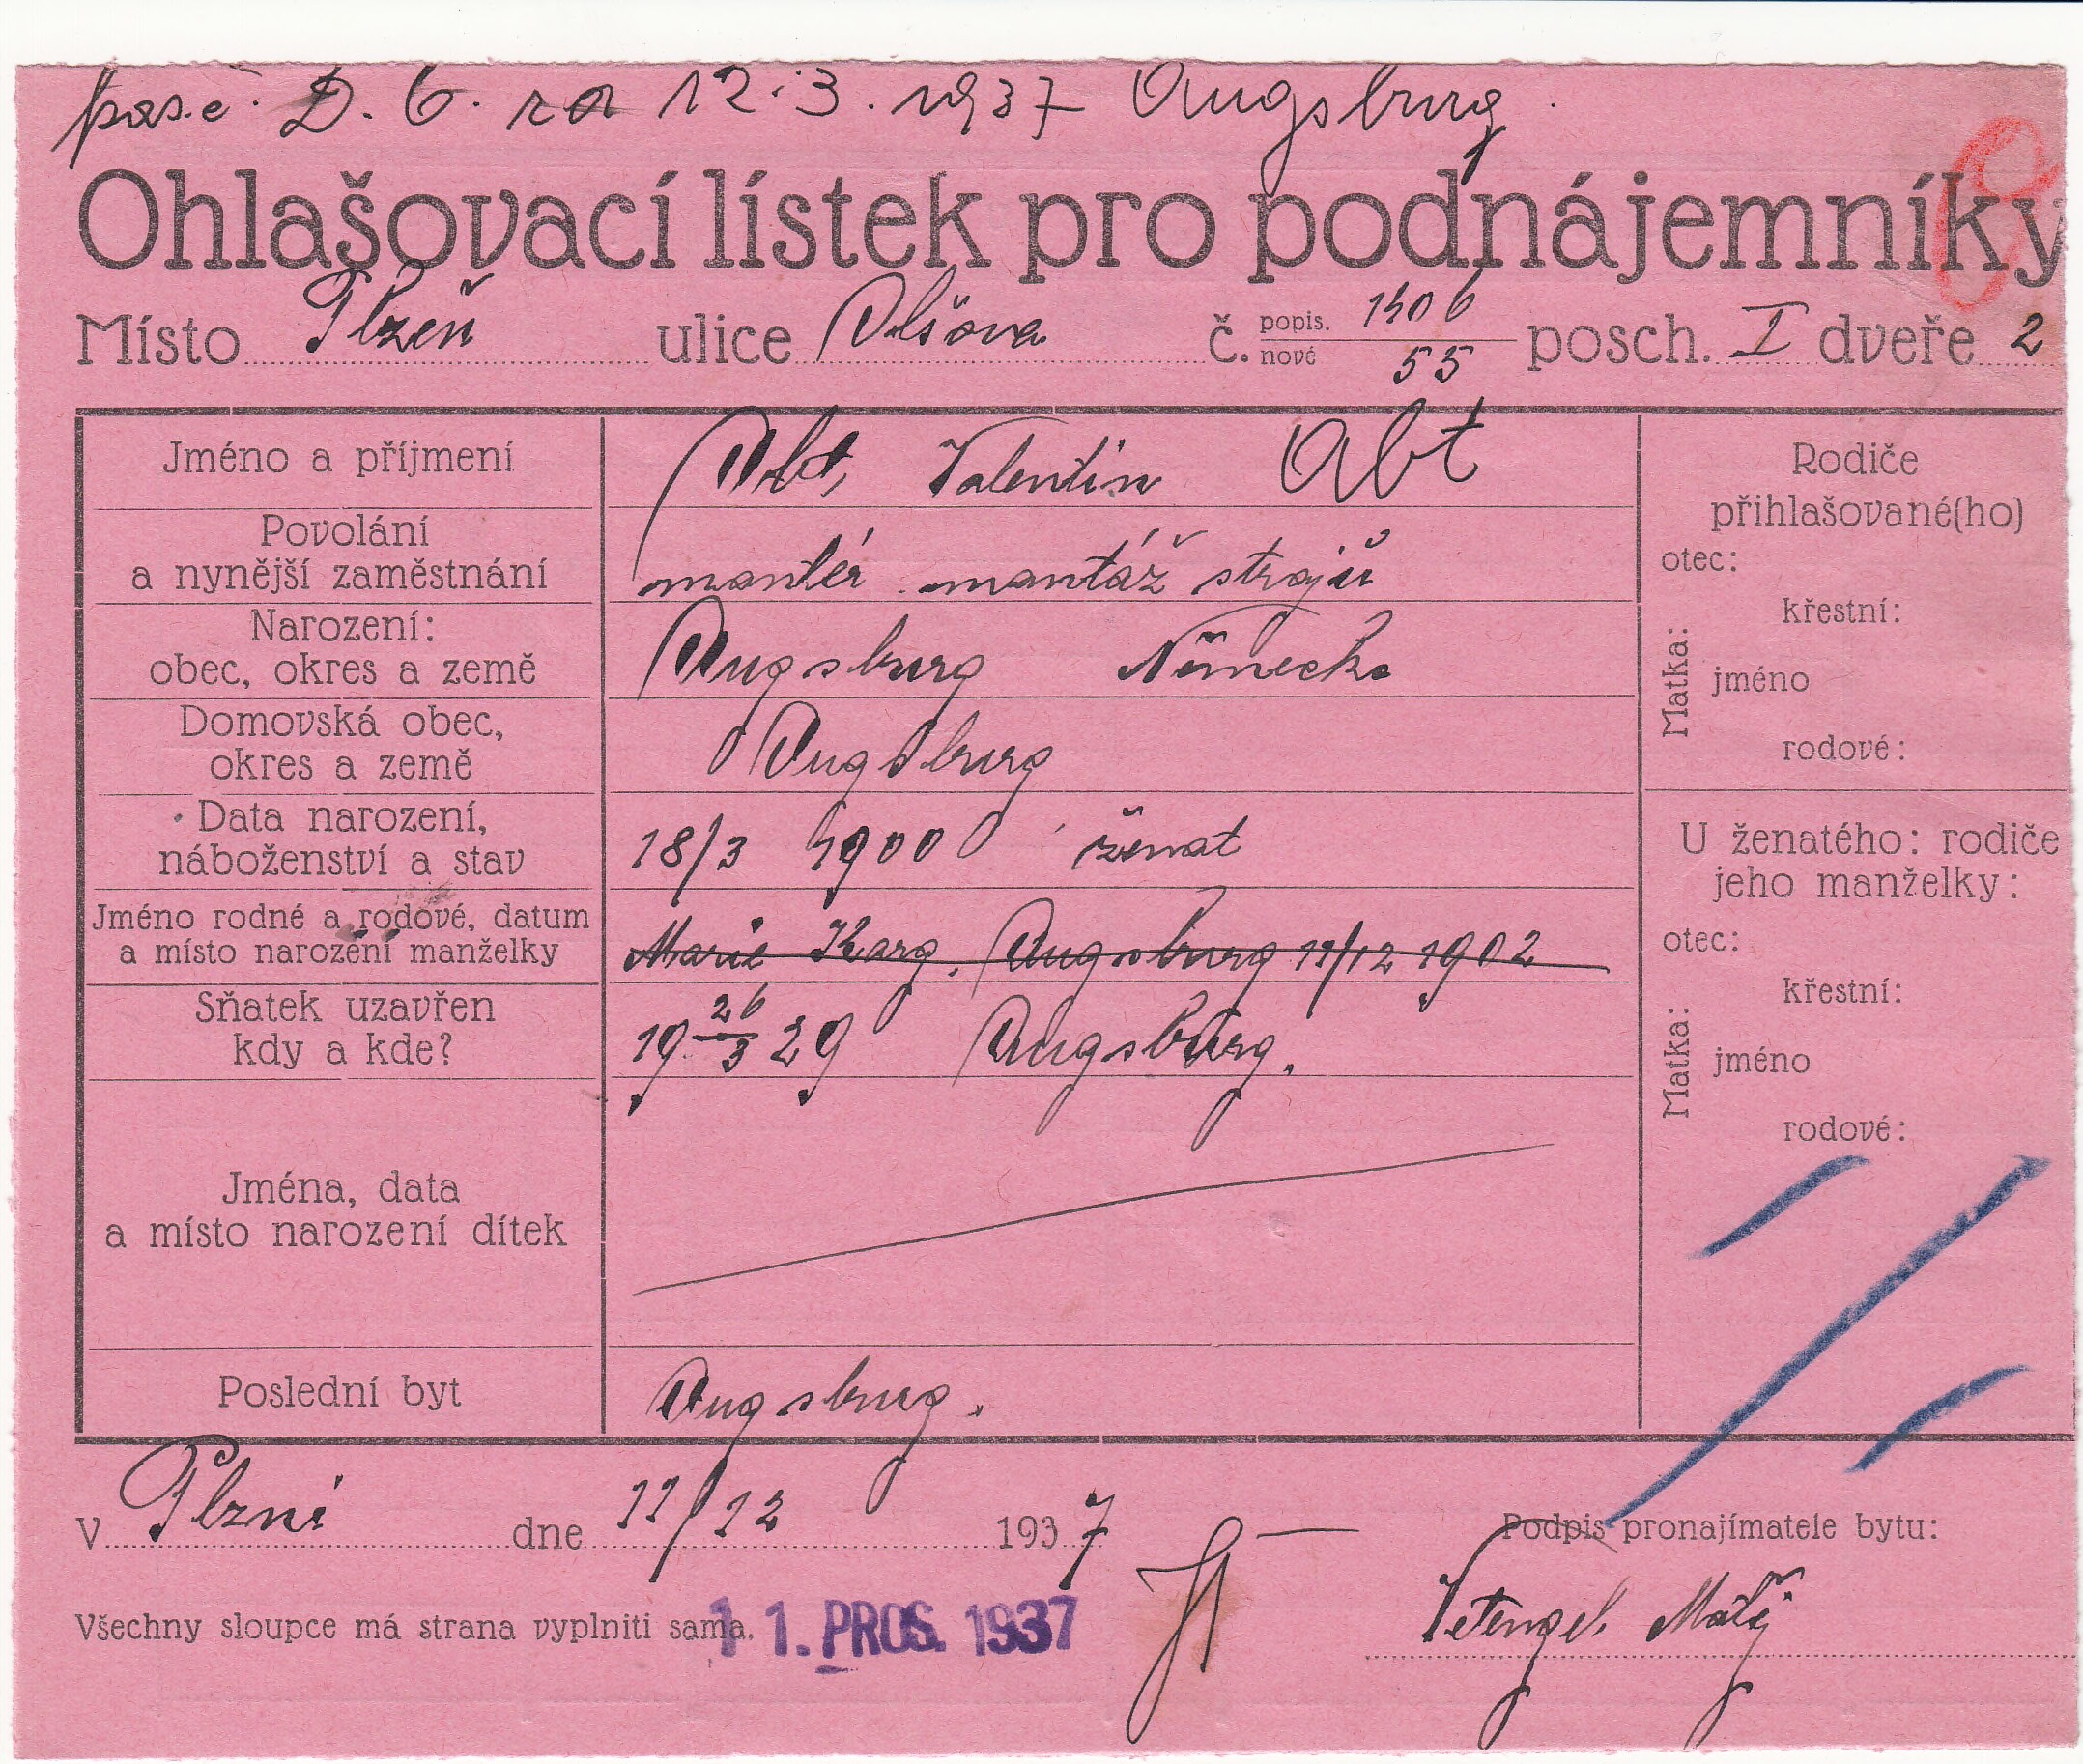 12.3.1937 Augsburg
Ohlašovací lístek pro podnájemníky
Místo Plzeň ulice Olšova č. popis. 1406 nové 55 posch. I dveře 2
Jméno a příjmení Abt, Valentin Abt
Povolání a nynější zaměstnání montér montáž strojů
Narození: obec, okres a země Augsburg Německo
Domovská obec, okres a země Augsburg
Data narození, náboženství a stav 18/3 1900 ženat
Jméno rodné a rodové, datum a místo narození manželky Marie Karg. Augsburg 11/12 1902
Sňatek uzavřen kdy a kde? 19 26/3 29 Augsburg.
Jména, data a místo narození dítek
Poslední byt Augsburg.
Rodiče
přihlašované(ho)
otec:
Matka:
křestní:
jméno
rodové:
U ženatého: rodiče
jeho manželky:
otec:
Matka:
křestní:
jméno
rodové:
V Plzni dne 11/12 1937
Podpis pronajímatele bytu:
Všechny sloupce má strana vyplniti sama.
11. PROS. 1937
Matěj